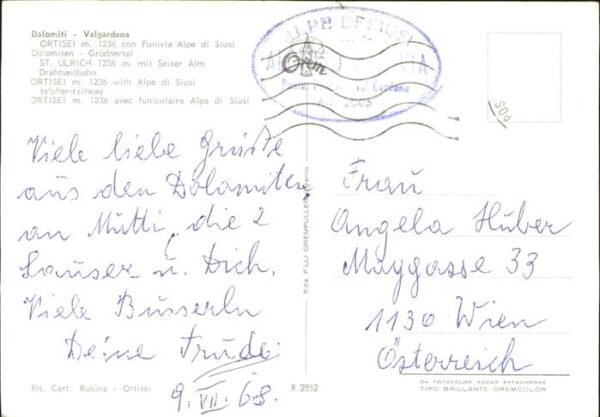 Dolomiti - Valgardena
ORTISEI m. 1236 con Funivia Alpe di Siusi
Dolomiten - Grödnertal
ST. ULRICH 1236 m. mit Seiser Alm
Drahtseilbahn
ORTISEI m. 1236 with Alpe di Siusi
telpher-railway
ORTISEI m. 1236 avec funiculaire Alpe di Siusi
ALPE DI SIUSI
Orem
POS
Viele liebe Grüße
aus den Dolomiten
an Mutti, die 2
Lauser u. Dich.
Viele Busserln
Deine Trude
9. VII. 68.
Ediz. F.LLI OREMPULLER
Frau
Angela Huber
Maygasse 33
1130 Wien
Österreich
Ris. Cart. Rusina - Ortisei
R 2852
DA FOTOCOLOR KODAK EKTACHROME
TIPO BRILLANTE OREMCOLOR